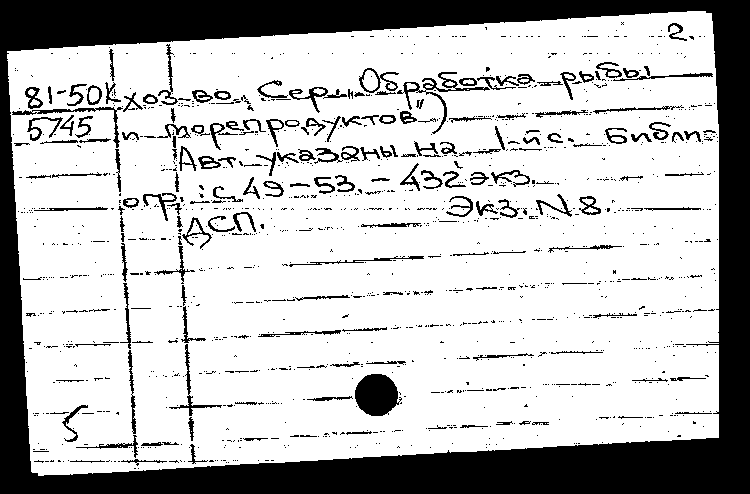 2.
81-50К хоз-во. Сер. „Обработка рыбы
5745 и морепродуктов")
Авт. указаны на 1-й с. Библи-
огр.: с. 49-53. - 432 экз.
ДСП. Экз. N 8.
5